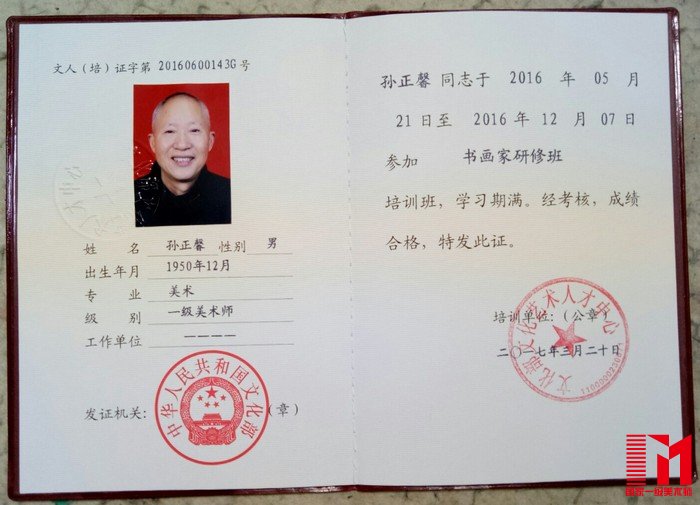 文人（培）证字第 20160600143G 号
姓　名 孙正馨 性别 男
出生年月 1950年12月
专　业 美术
级　别 一级美术师
工作单位 ————
发证机关:　（章）
中华人民共和国文化部
孙正馨 同志于 2016 年 05 月
21 日至 2016 年 12 月 07 日
参加 书画家研修班
培训班，学习期满。经考核，成绩
合格，特发此证。
培训单位:（公章）
二〇一七年三月二十日
文化部文化艺术人才中心
国家一级美术师